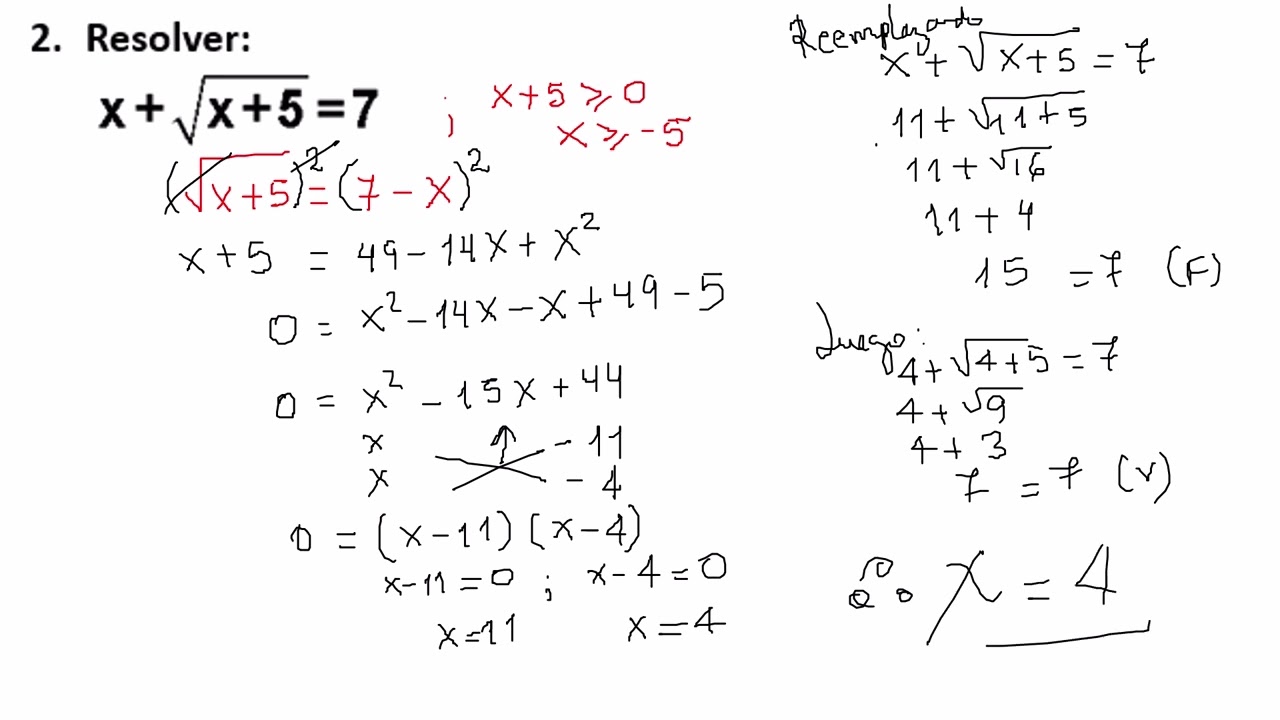 2. Resolver:
x + √(x + 5) = 7 ; x + 5 ≥ 0
x ≥ -5
(√(x + 5))² = (7 - x)²
x + 5 = 49 - 14x + x²
0 = x² - 14x - x + 49 - 5
0 = x² - 15x + 44
x - 11
x - 4
0 = (x - 11) (x - 4)
x - 11 = 0 ; x - 4 = 0
x = 11 x = 4
Reemplazando
x + √(x + 5) = 7
11 + √(11 + 5)
11 + √16
11 + 4
15 = 7 (F)
Luego:
4 + √(4 + 5) = 7
4 + √9
4 + 3
7 = 7 (V)
∴ x = 4